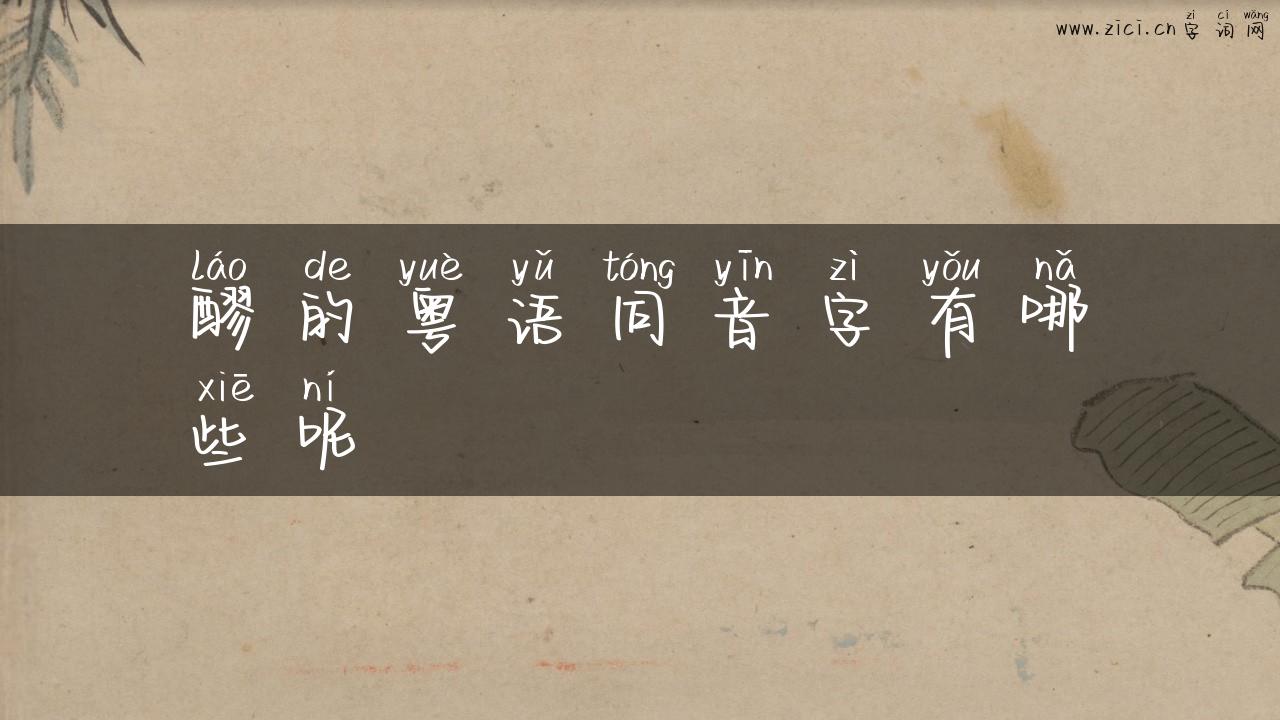 zì cí wǎng
www.zici.cn 字 词 网
láo de yuè yǔ tóng yīn zì yǒu nǎ
醪 的 粤 语 同 音 字 有 哪
xiē ní
些 呢